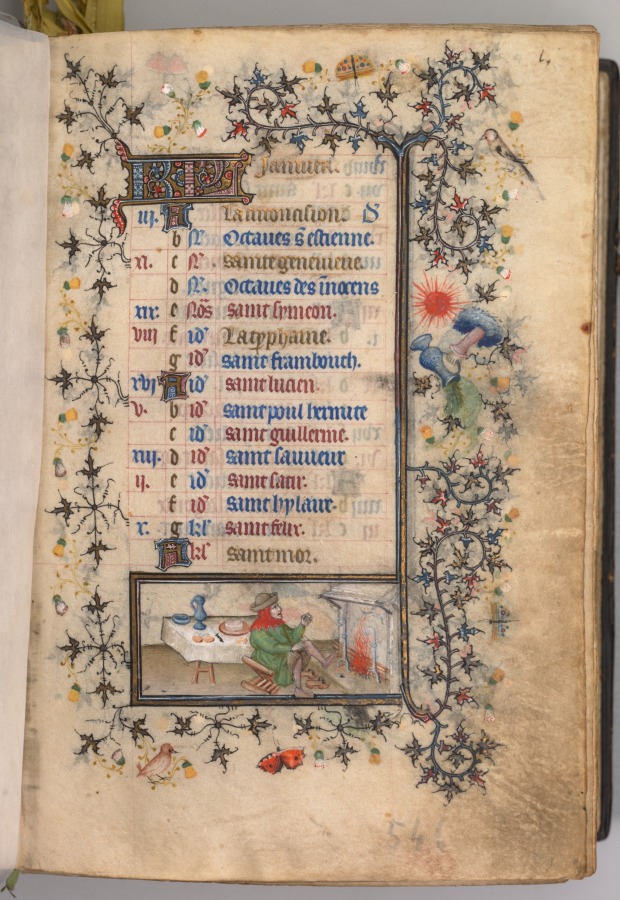 KL Januier.
iij. A La circoncision
b iiij Octaues s estienne.
xi. c iij sainte geneuieue.
d ij Octaues des inocens
xix. e Nōs saint symeon.
viij f id' La typhaine.
g id' saint frambouch.
xvj A id' saint lucien.
v. b id' saint poul hermite
c id' saint guillerme.
xiij. d id' saint sauueur
ij. e id' saint satir.
f id' saint hylaire.
x. g kl' saint felix.
A kl' saint mor.